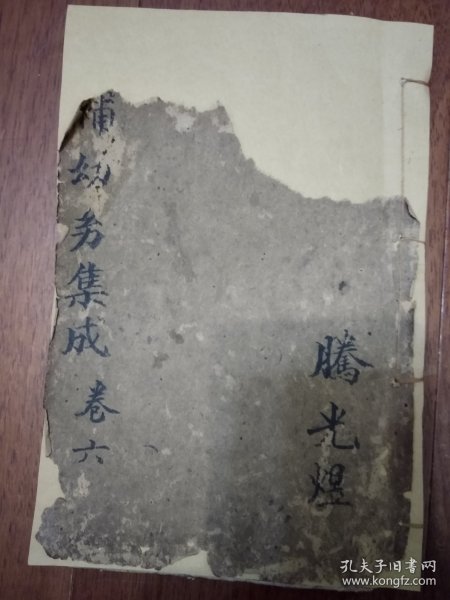 補幼芳集成 卷六
騰光煜
孔夫子旧书网
www.kongfz.com